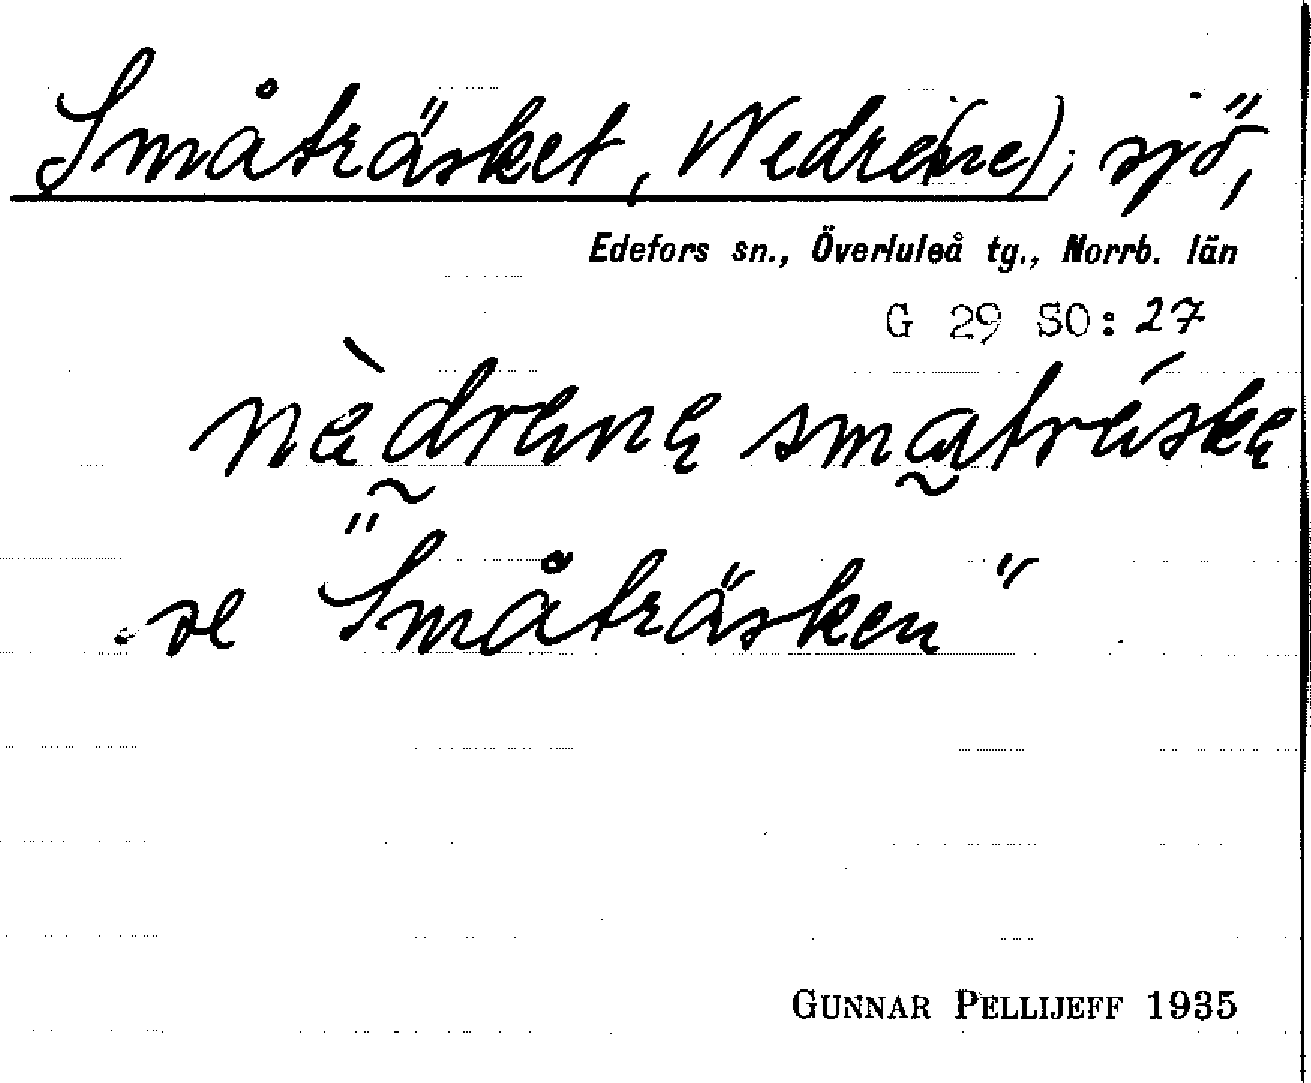 Småträsket, Nedre(ne); sjö,
Edefors sn., Överluleå tg., Norrb. län
G 29 SO: 27
nèdrene småtréske
se "Småträsken"
GUNNAR PELLIJEFF 1935